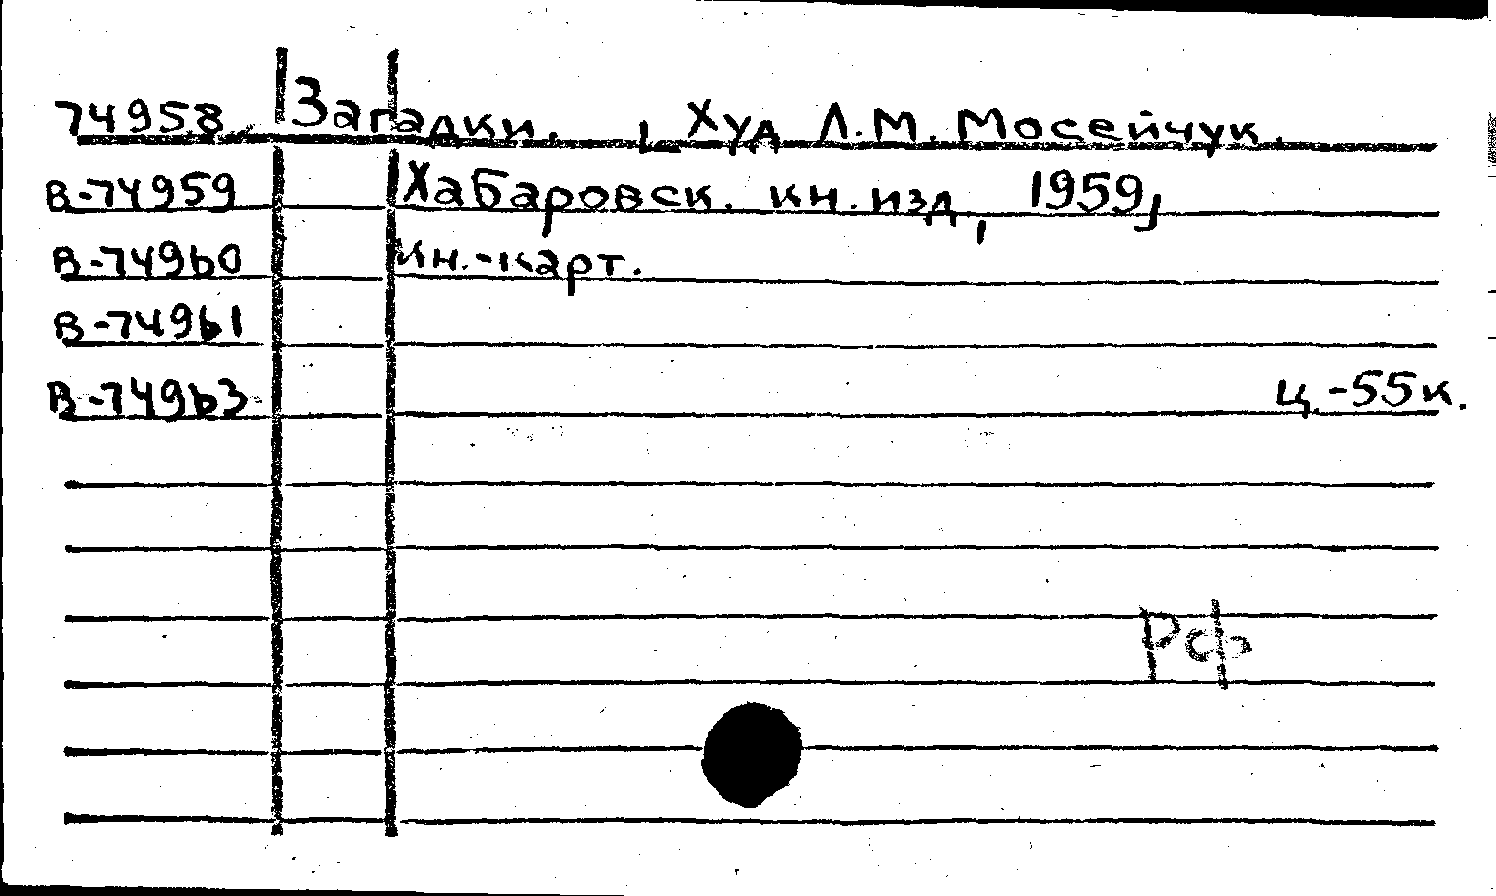 74958 Загадки. , Худ Л.М. Мосейчук.
В-74959 Хабаровск. кн. изд, 1959,
В-74960 Кн.-карт.
В-74961
В-74963 Ц.-55к.
Рф